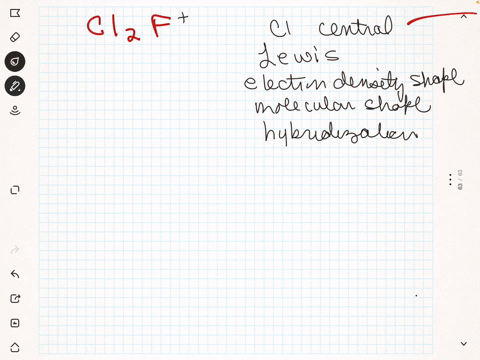 Cl₂F⁺
Cl central
Lewis
electron density shape
molecular shape
hybridization
63 / 63